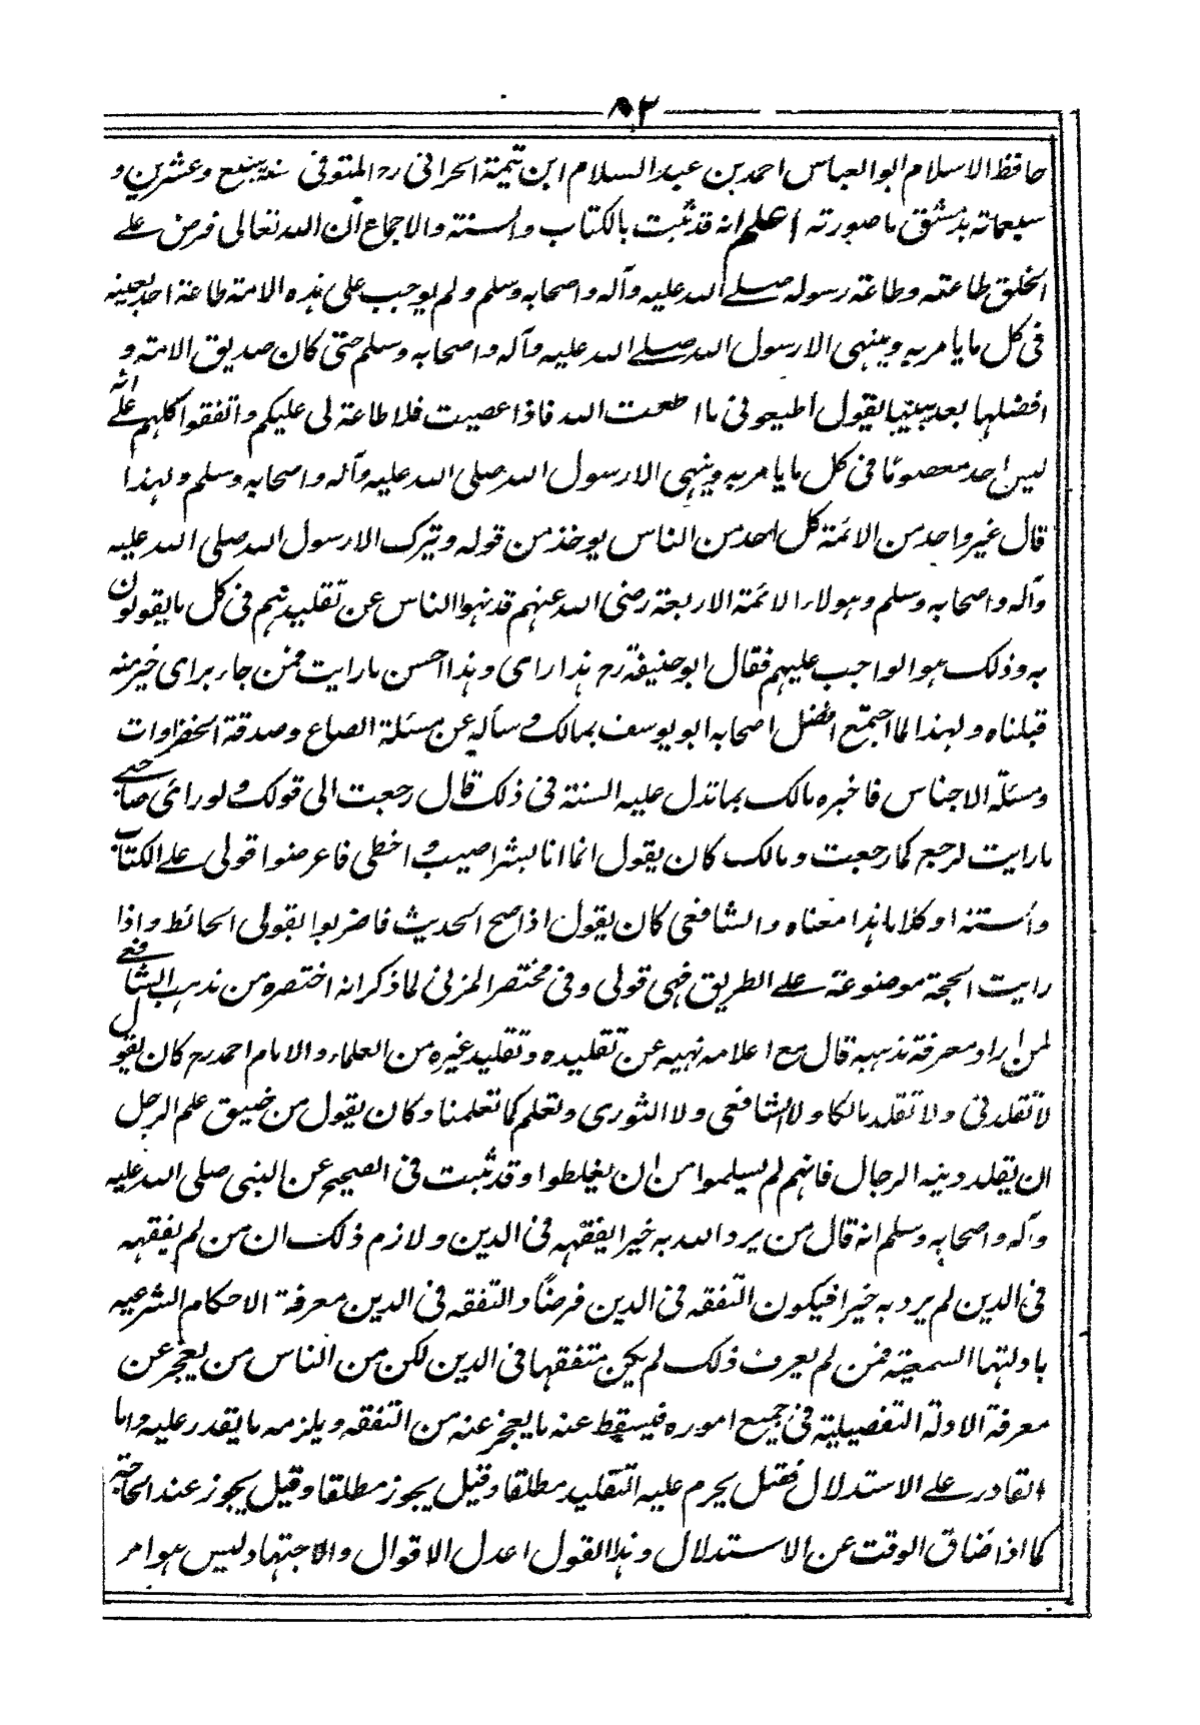 ٨٣
حافظ الاسلام ابو العباس احمد بن عبد السلام ابن تيمية الحرانی رح المتوفی سنة سبع وعشرين و
سبعمائة بدمشق ما صورته اعلم انه قد ثبت بالكتاب والسنة والاجماع ان الله تعالى فرض علے
الخلق طاعته وطاعة رسوله صلے الله عليه وآله واصحابه وسلم ولم يوجب على هذه الامة طاعة احد بعينه
فی كل ما يامر به وينهى الا رسول الله صلے الله عليه وآله واصحابه وسلم حتى كان صديق الامة و
افضلها بعد نبيها يقول اطيعونی ما اطعت الله فاذا عصيت فلا طاعة لی عليكم واتفقوا كلهم علے انه
ليس احد معصوما فی كل ما يامر به وينهى الا رسول الله صلى الله عليه وآله واصحابه وسلم ولهذا
قال غير واحد من الائمة كل احد من الناس يوخذ من قوله ويترك الا رسول الله صلى الله عليه
وآله واصحابه وسلم وهولاء الائمة الاربعة رضی الله عنهم قد نهوا الناس عن تقليدهم فی كل ما يقولون
به وذلك هو الواجب عليهم فقال ابو حنيفة رح هذا رای وهذا احسن ما رايت فمن جاء برای خير منه
قبلناه ولهذا لما اجتمع افضل اصحابه ابو يوسف بمالك وسأله عن مسئلة الصاع وصدقة الخضراوات
ومسئلة الاجناس فاخبره مالك بما تدل عليه السنة فی ذلك قال رجعت الى قولك ولو رای صاحبے
ما رايت لرجع كما رجعت ومالك كان يقول انما انا بشر اصيب واخطی فاعرضوا قولی علے الكتاب
والسنة او كلاما هذا معناه والشافعی كان يقول اذا صح الحديث فاضربوا بقولی الحائط واذا
رايت الحجة موضوعة علے الطريق فهی قولی وفی مختصر المزنی لما ذكر انه اختصره من مذهب الشافعے
لمن اراد معرفة مذهبه قال مع اعلامه نهيه عن تقليده وتقليد غيره من العلماء والامام احمد رح كان يقول
لا تقلدنی ولا تقلد مالكا ولا الشافعی ولا الثوری وتعلم كما تعلمنا وكان يقول من ضيق علم الرجل
ان يقلد دينه الرجال فانهم لم يسلموا من ان يغلطوا وقد ثبت فی الصحيح عن النبی صلى الله عليه
وآله واصحابه وسلم انه قال من يرد الله به خيرا يفقهه فی الدين ولازم ذلك ان من لم يفقهه
فی الدين لم يرد به خيرا فيكون التفقه فی الدين فرضا والتفقه فی الدين معرفة الاحكام الشرعية
بادلتها السمعية فمن لم يعرف ذلك لم يكن متفقها فی الدين لكن من الناس من يعجز عن
معرفة الادلة التفصيلية فی جميع اموره فيسقط عنه ما يعجز عنه من التفقه ويلزمه ما يقدر عليه واما
القادر علے الاستدلال فقيل يحرم عليه التقليد مطلقا وقيل يجوز مطلقا وقيل يجوز عند الحاجة
كما اذا ضاق الوقت عن الاستدلال وهذا القول اعدل الاقوال والاجتهاد ليس هو امر